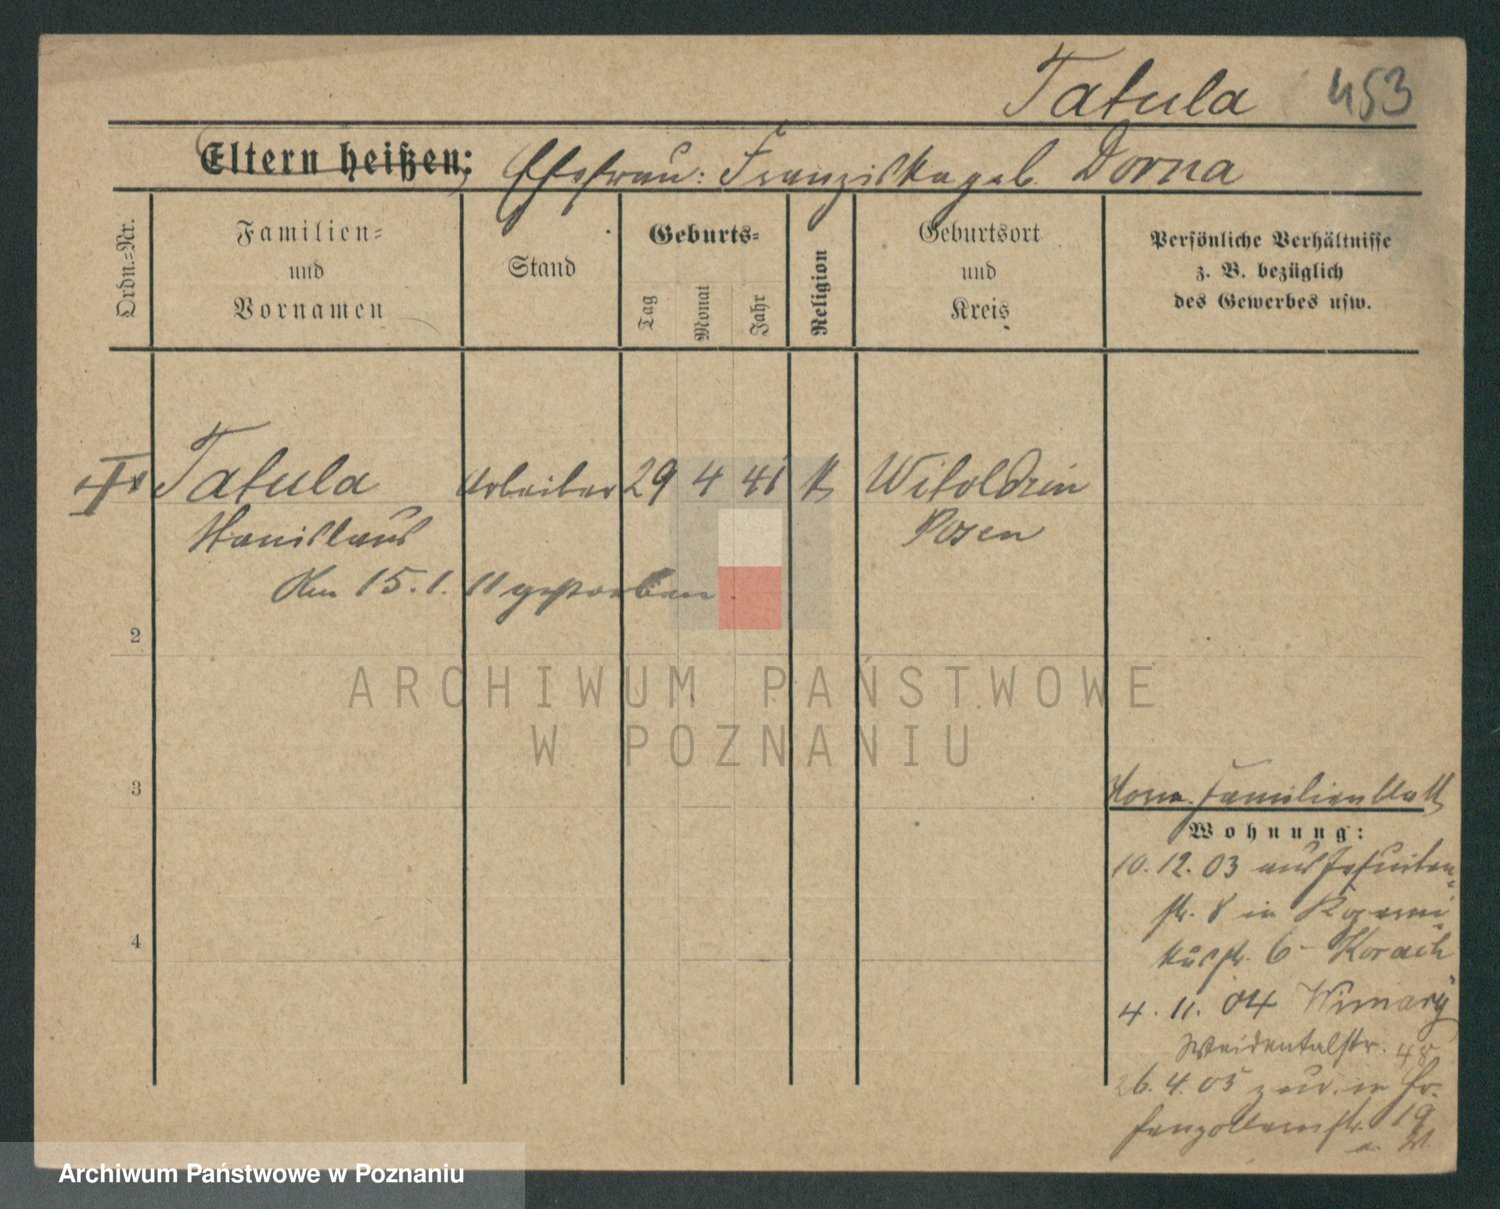 Tatula 453
Eltern heißen: Ehefrau: Franziska geb. Dorna
Ordn.-Nr.
Familien-
und
Vornamen
Stand
Geburts-
Tag
Monat
Jahr
Religion
Geburtsort
und
Kreis
Persönliche Verhältnisse
z. B. bezüglich
des Gewerbes usw.
Tatula Arbeiter 29 4 41 k Witoldzin
Stanislaus Posen
Am 15. 1. 11 gestorben.
2
3
4
Familienblatt
Wohnung:
10. 12. 03 aus Jesuiten-
str. 8 in
6 - Korach
4. 11. 04 Wimary
Weidentalstr. 48
26. 4. 05 zur. in Ho-
henzollernstr. 19
ARCHIWUM PAŃSTWOWE
W POZNANIU
Archiwum Państwowe w Poznaniu